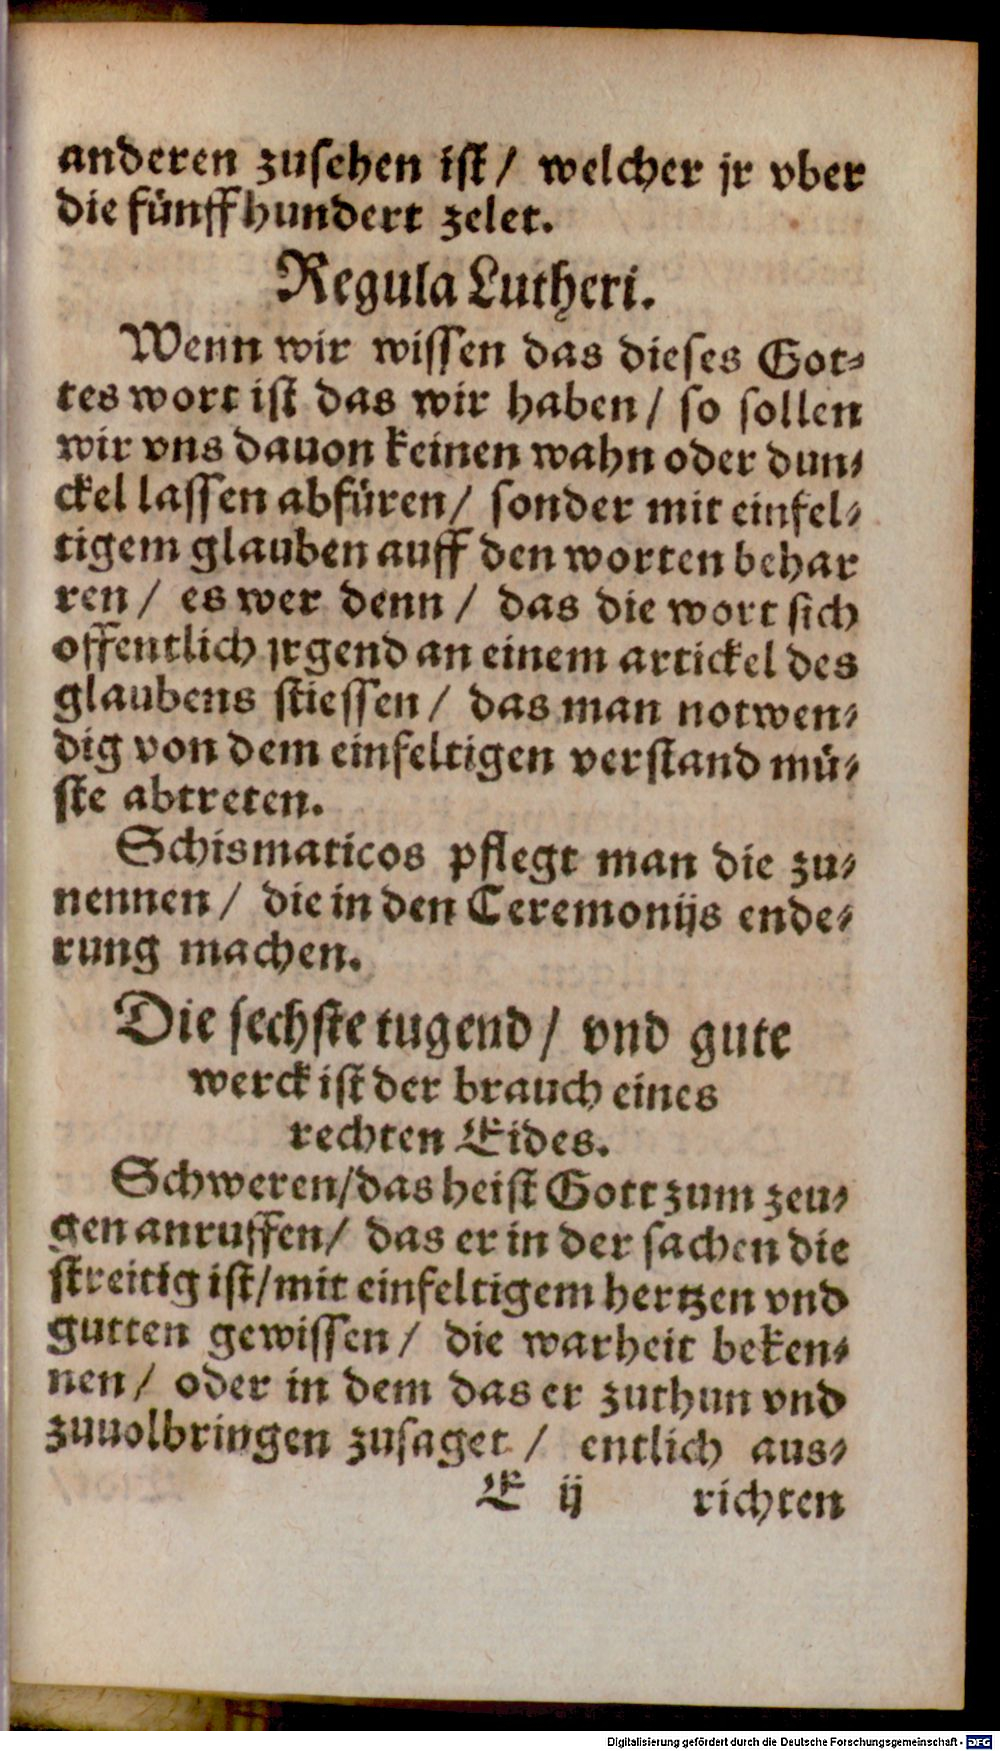 anderen zusehen ist / welcher jr vber
die fünffhundert zelet.
Regula Lutheri.
Wenn wir wissen das dieses Got⸗
tes wort ist das wir haben / so sollen
wir vns dauon keinen wahn oder dun⸗
ckel lassen abfüren / sonder mit einfel⸗
tigem glauben auff den worten behar
ren / es wer denn / das die wort sich
offentlich jrgend an einem artickel des
glaubens stiessen / das man notwen⸗
dig von dem einfeltigen verstand mü⸗
ste abtreten.
Schismaticos pflegt man die zu⸗
nennen / die in den Ceremonijs ende⸗
rung machen.
Die sechste tugend / vnd gute
werck ist der brauch eines
rechten Eides.
Schweren/das heist Gott zum zeu⸗
gen anruffen/ das er in der sachen die
streitig ist/mit einfeltigem hertzen vnd
gutten gewissen / die warheit beken⸗
nen / oder in dem das er zuthun vnd
zuuolbringen zusaget / entlich aus⸗
E ij richten
Digitalisierung gefördert durch die Deutsche Forschungsgemeinschaft - DFG